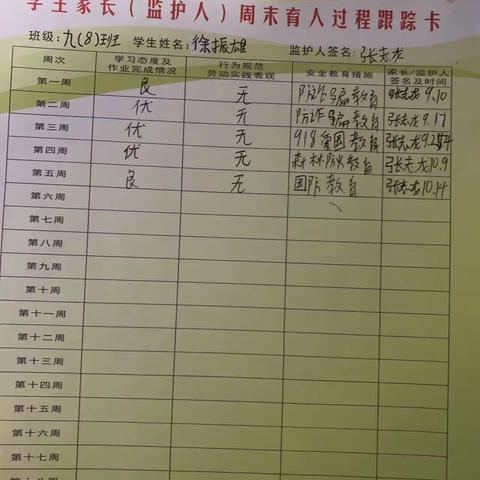 学生家长（监护人）周末育人过程跟踪卡
班级:九(8)班 学生姓名:徐振雄 监护人签名:张志龙
周次 学习态度及作业完成情况 行为规范劳动实践表现 安全教育措施 家长/监护人签名及时间
第一周 良 无 防诈骗教育 张志龙 9.10
第二周 优 无 防诈骗教育 张志龙 9.17
第三周 优 无 918爱国教育 张志龙
第四周 优 无 森林防火教育 张志龙 10.9
第五周 良 无 国防教育 张志龙 10.14
第六周
第七周
第八周
第九周
第十周
第十一周
第十二周
第十三周
第十四周
第十五周
第十六周
第十七周